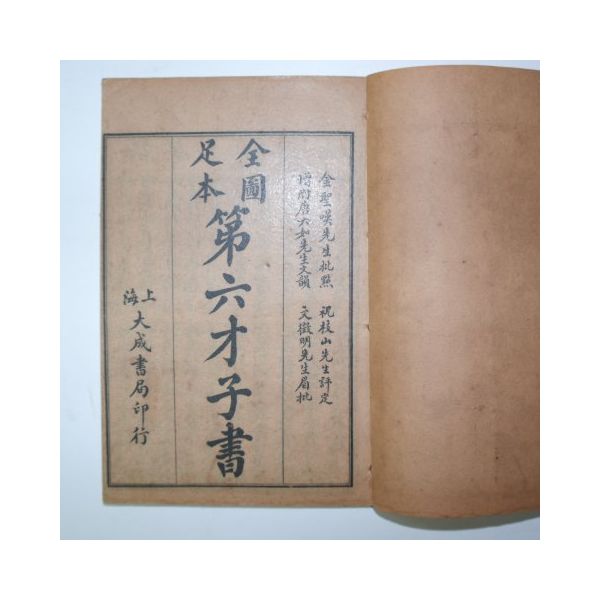 金聖嘆先生批點 祝枝山先生評定
增附唐六如先生文韻 文徵明先生眉批
全圖
足本
第六才子書
上海
大成書局印行